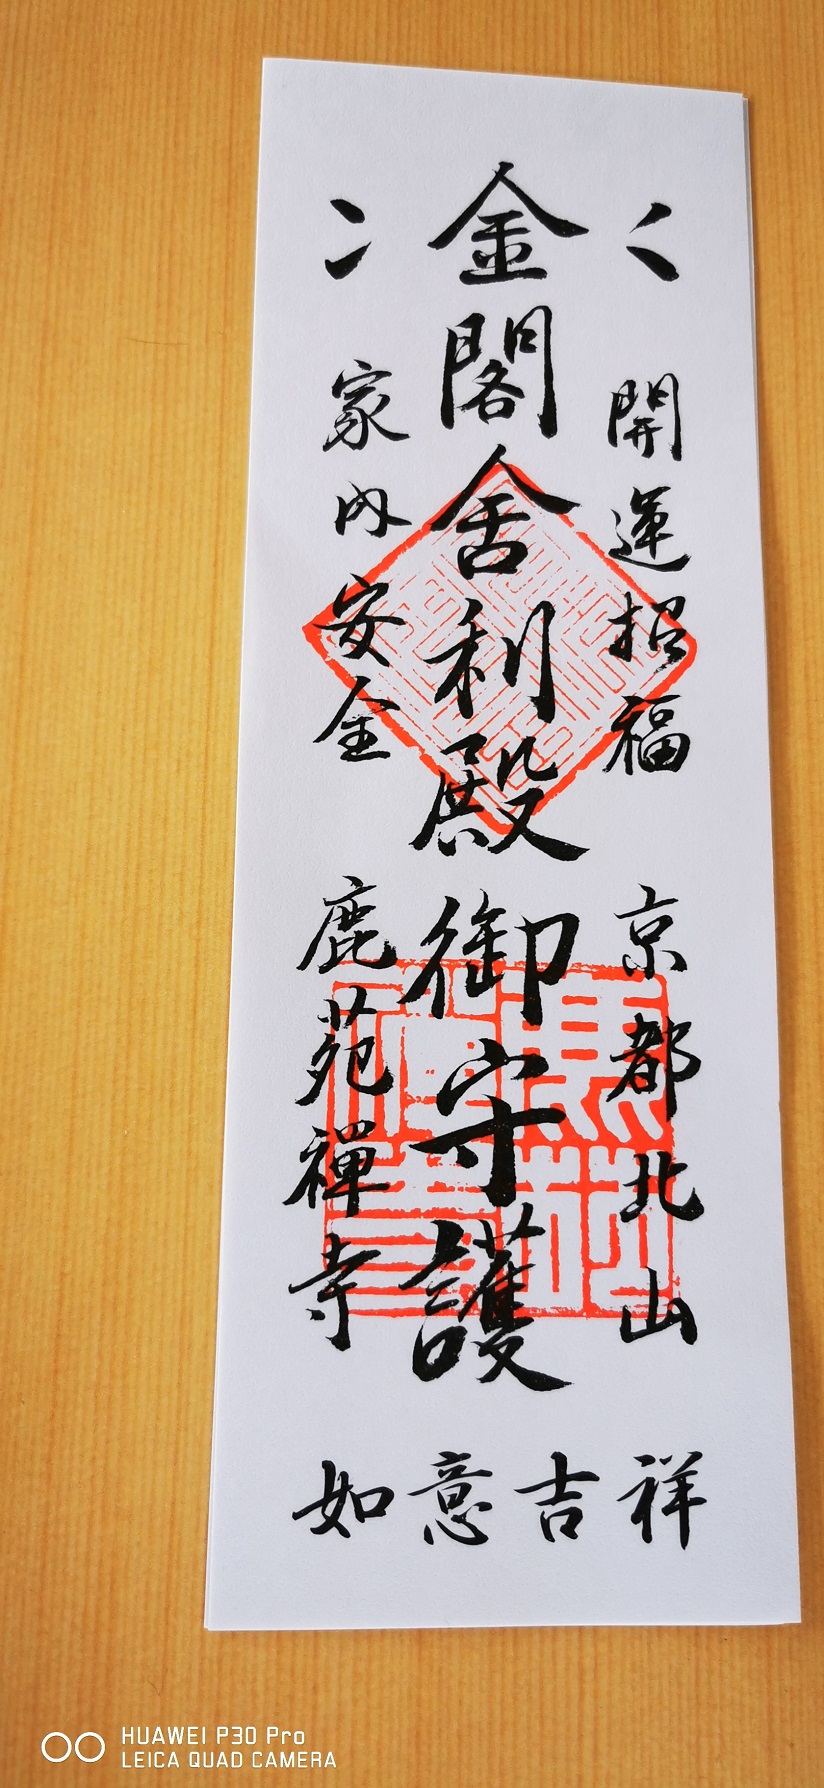 開運招福 京都北山
金閣舍利殿御守護
家内安全 鹿苑禪寺
如意吉祥
HUAWEI P30 Pro
LEICA QUAD CAMERA